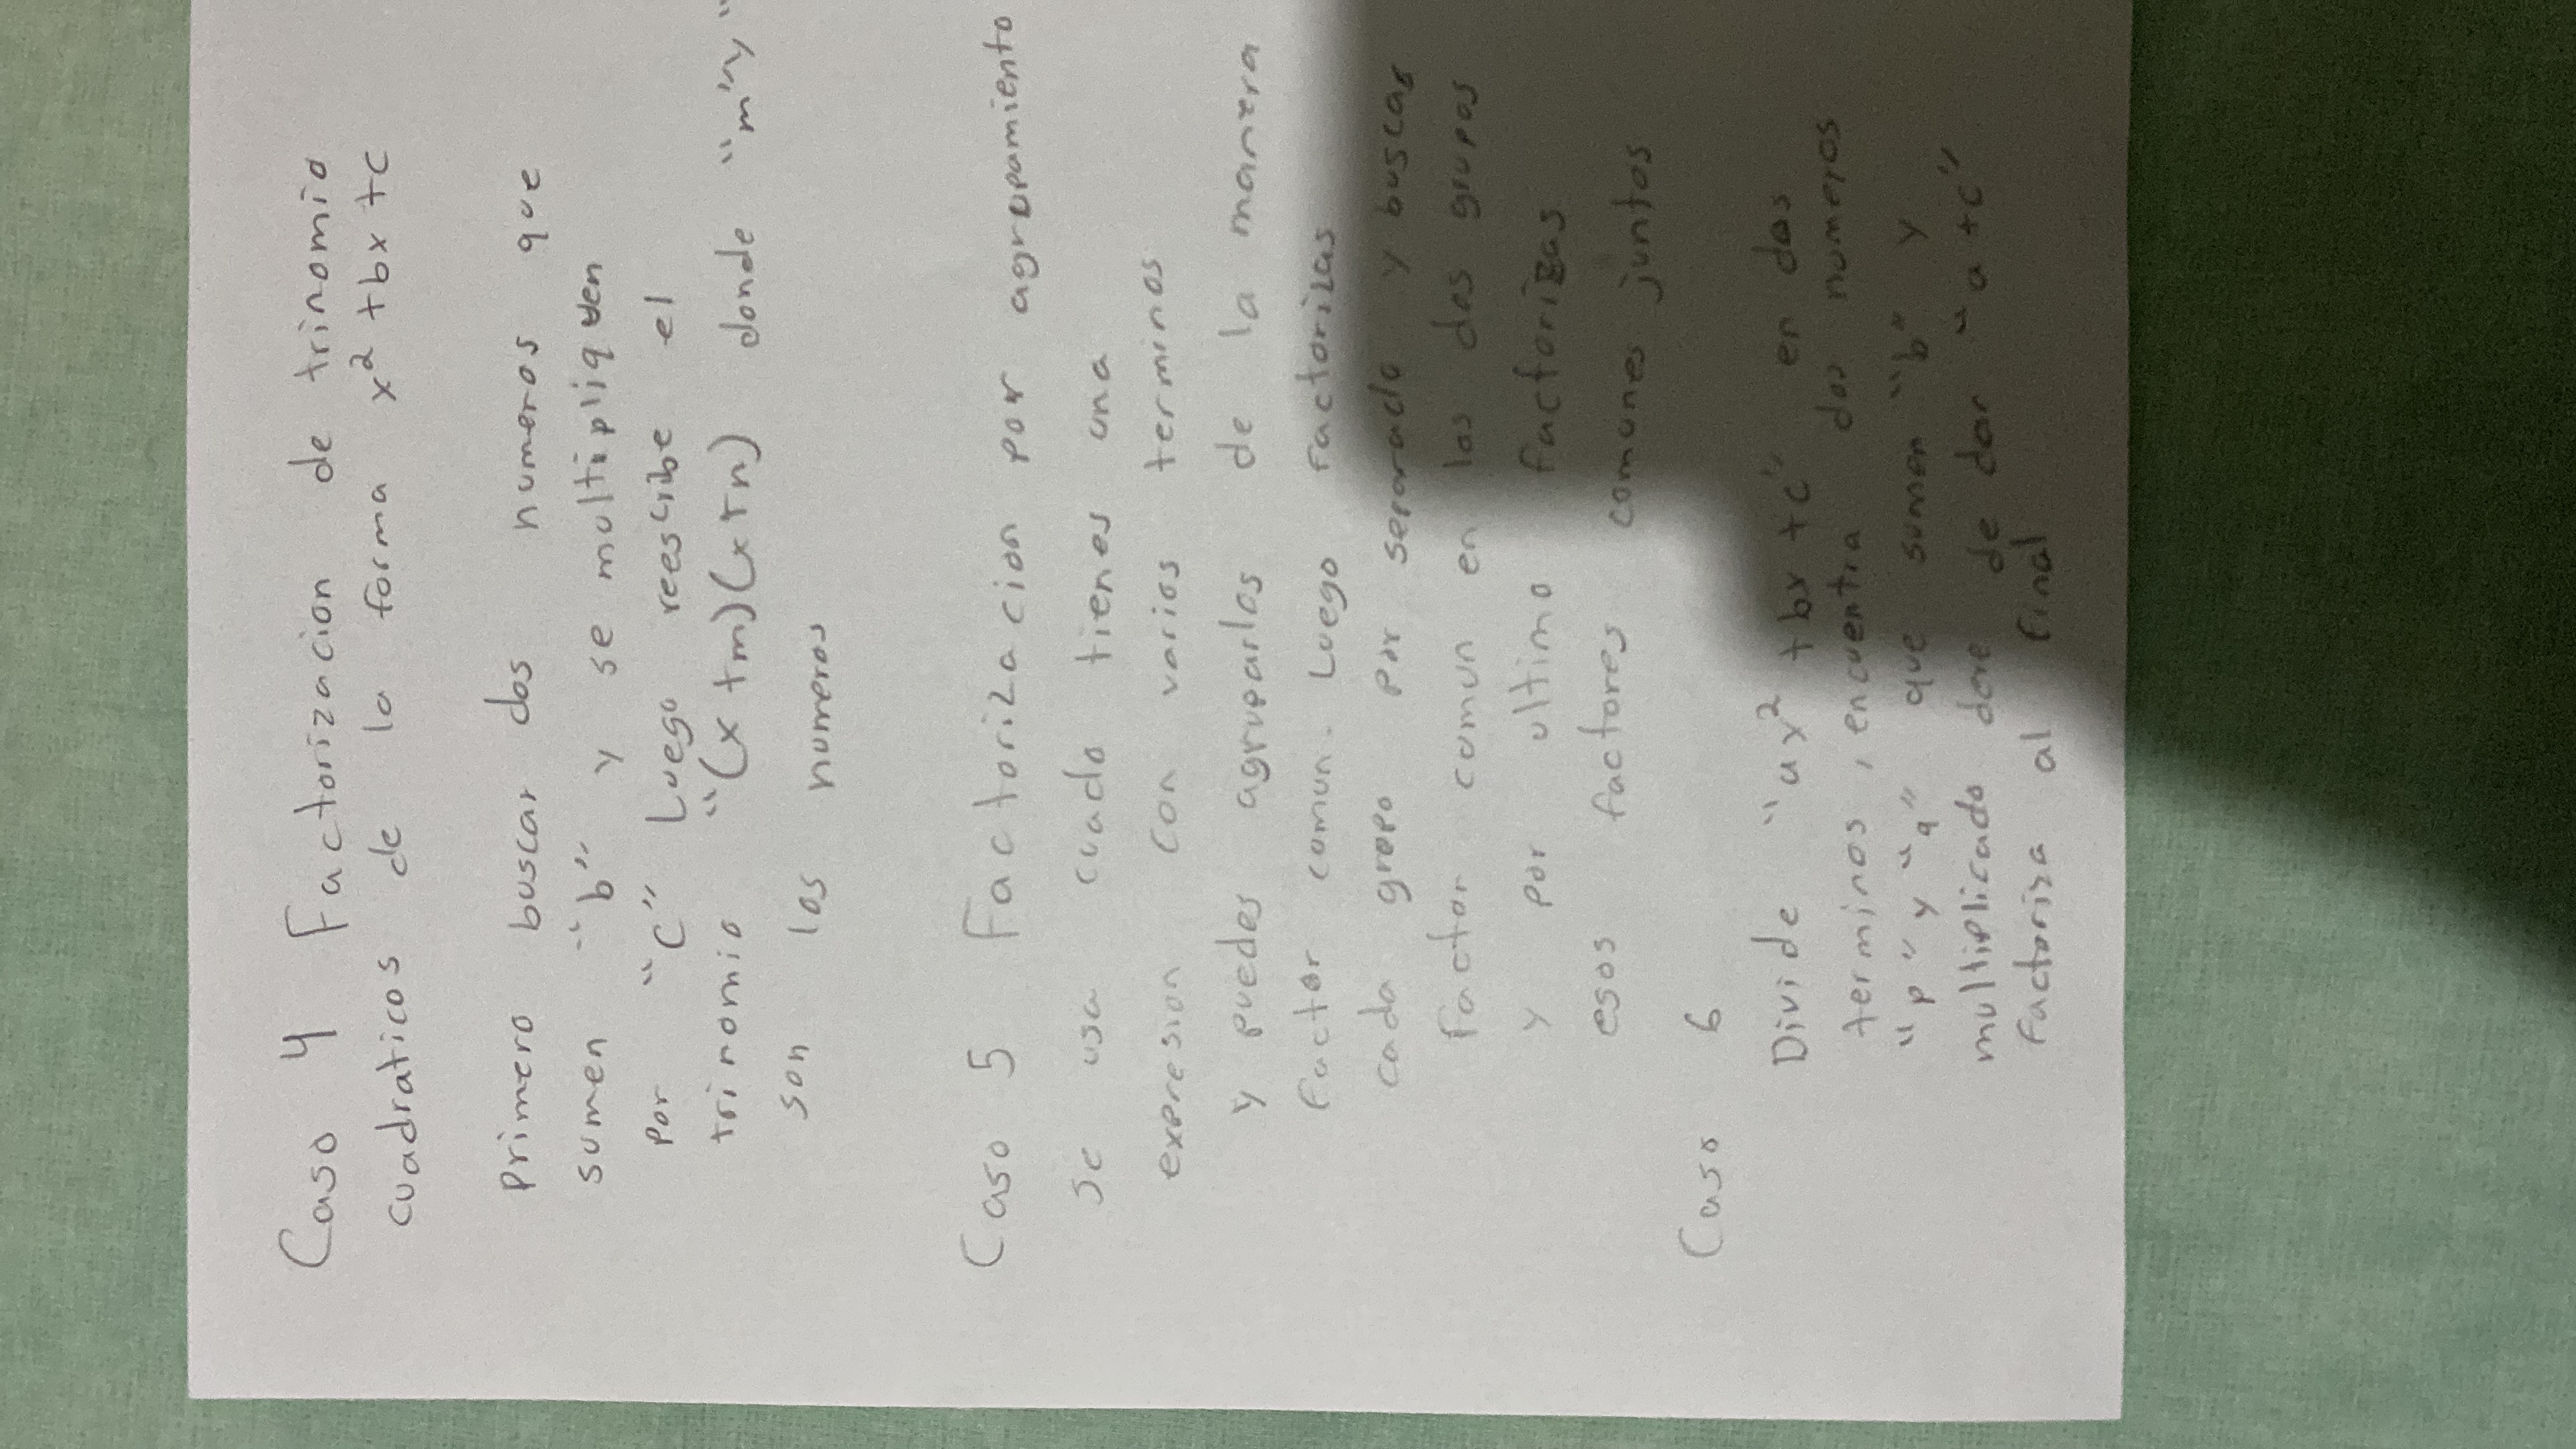 Caso 4 Factorizacion de trinomio
cuadraticos de la forma x² + bx + c
Primero buscar dos numeros que
sumen "b" y se multipliquen
por "c" Luego reescribe el
trinomio "(x + m)(x + n) donde "m" y "
son los numeros
Caso 5 Factorizacion por agrupamiento
Se usa cuado tienes una
expresion con varios terminos
y puedes agruparlos de la manera
factor comun. Luego factorizas
cada grupo por separado y buscas
factor comun en los dos grupos
y por ultimo factorizas
esos factores comunes juntos
Caso 6
Divide "ax² + bx + c" en dos
terminos, encuentra dos numeros
"p" y "q" que sumen "b" y
multiplicado debe de dar "a + c"
factoriza al final